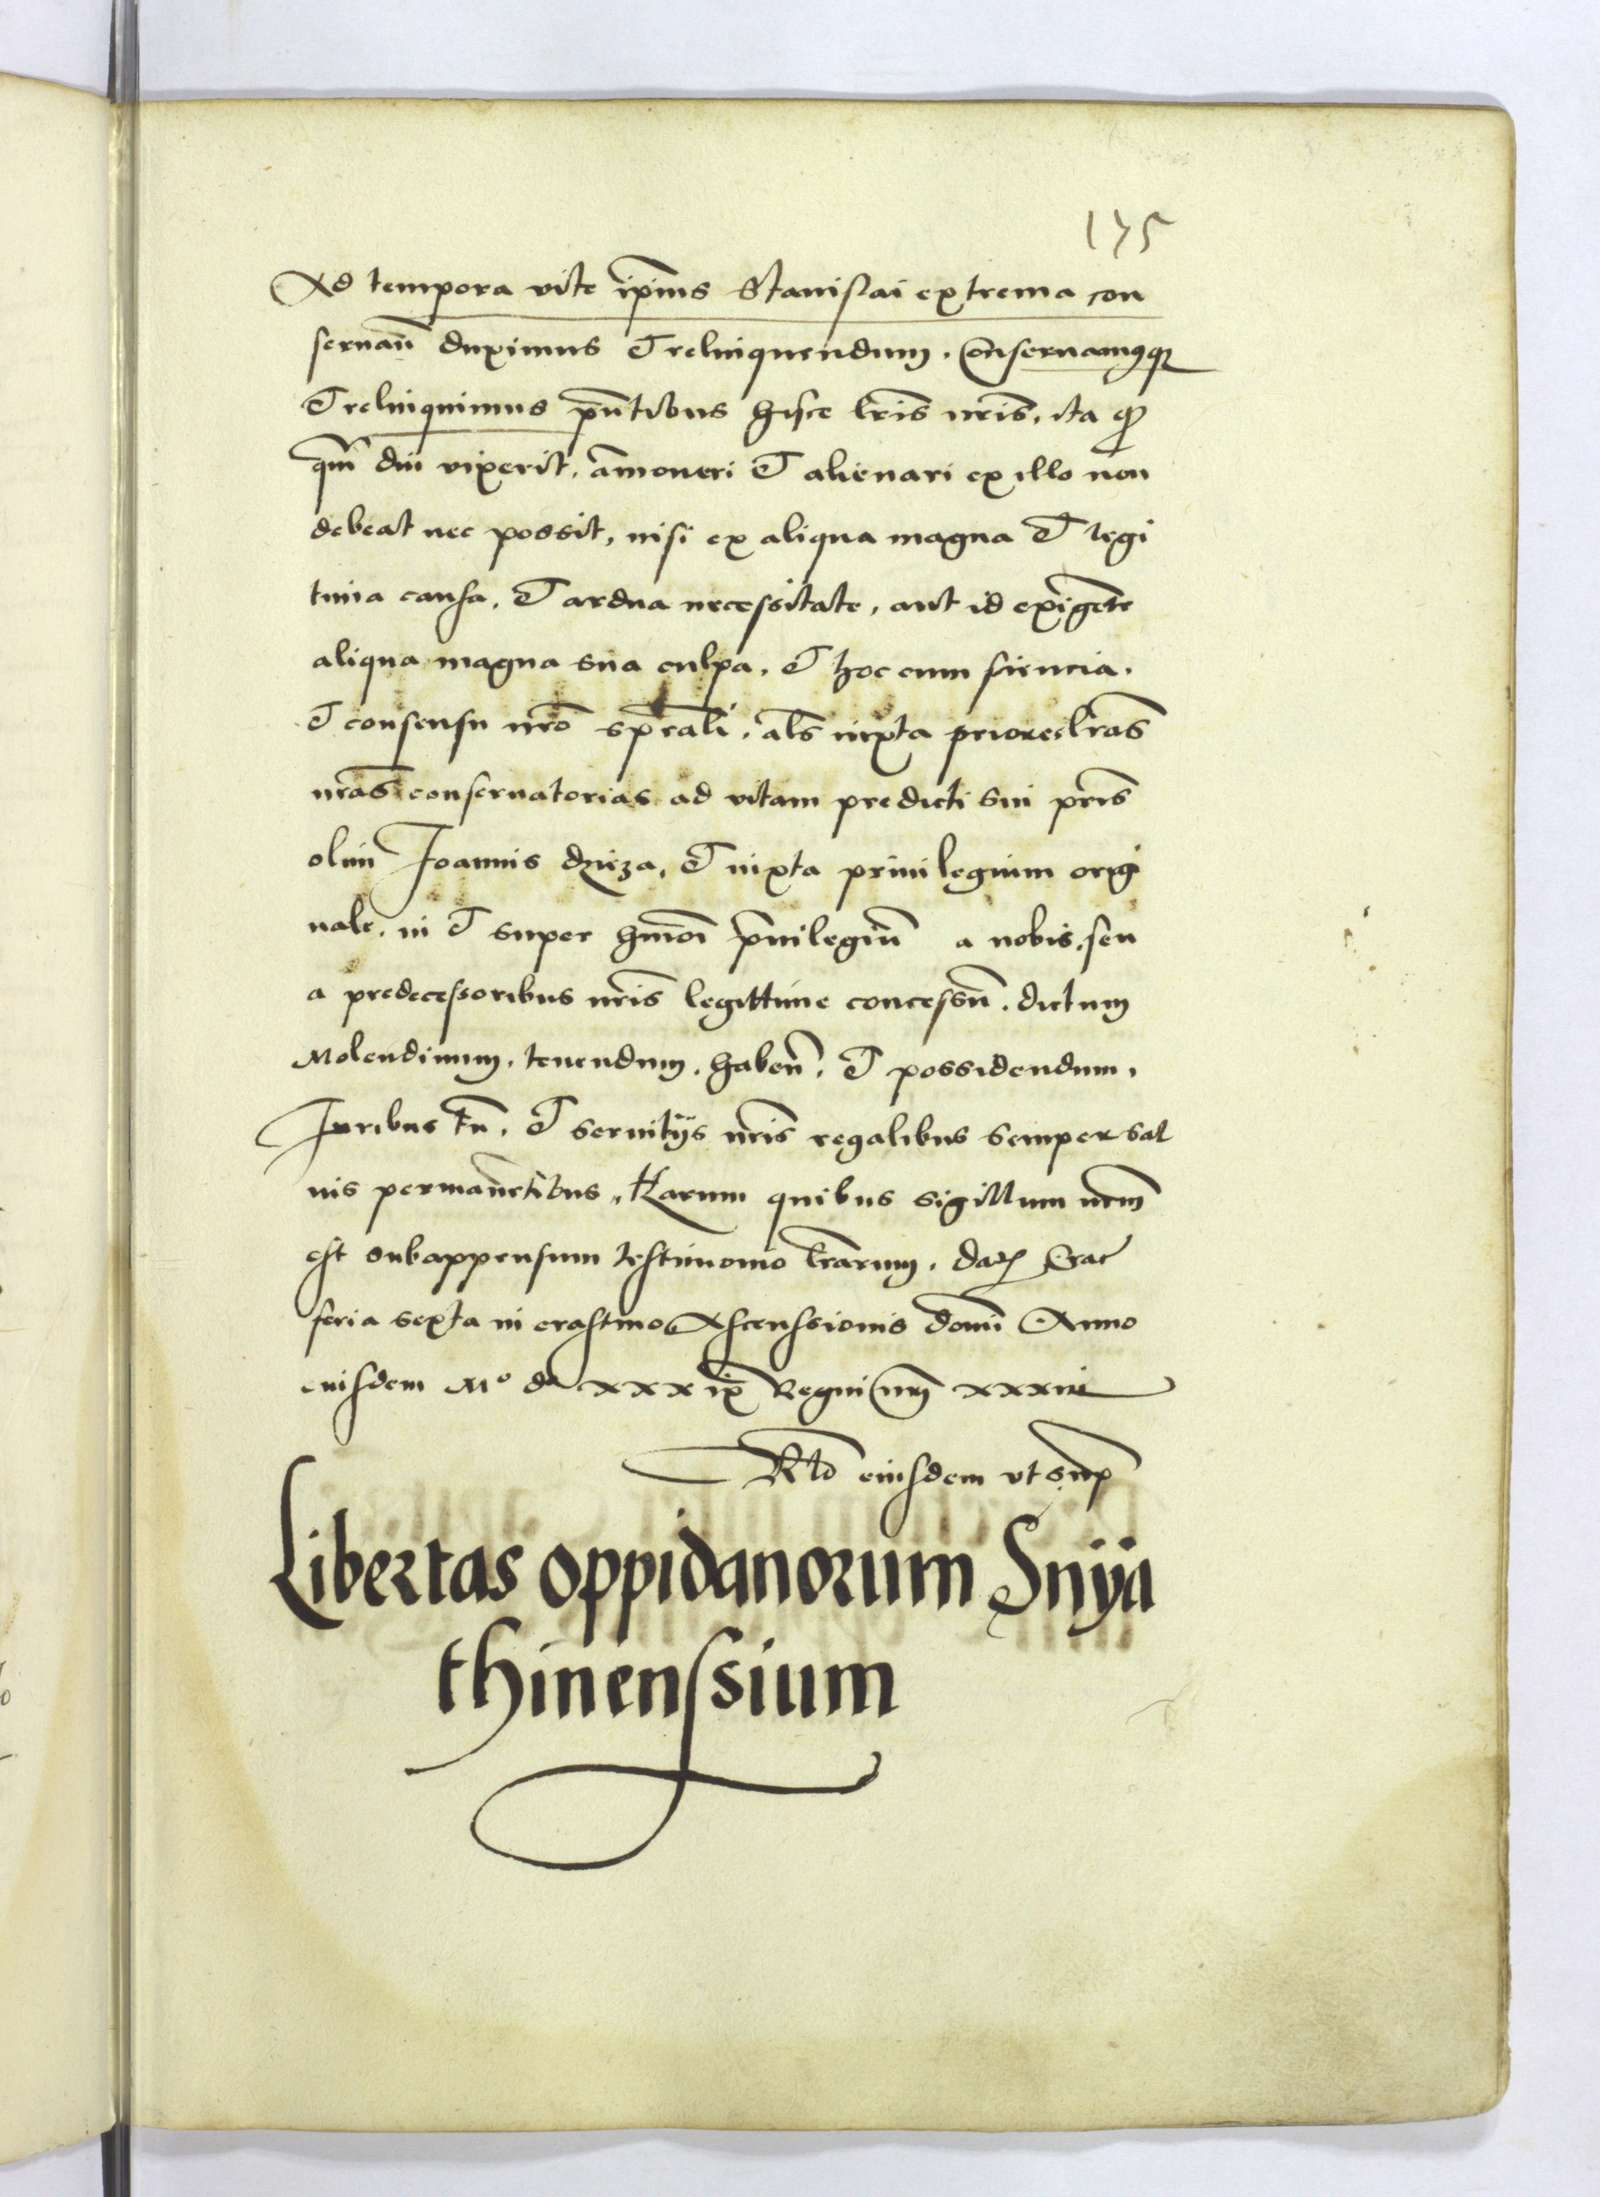 175
Ad tempora vite ip̄ius Stanislai extrema con
seruan̄ duximus Et relinquendum. Conseruamusqꝫ
Et relinquimus p̄ntibus hisce l̄ris nr̄is, ita ꝙ
qm̄ diu vixerit, am̄oueri Et alienari ex illo non
debeat nec possit, nisi ex aliqua magna Et legi
tima causa, Et ardua necessitate, aut id exigen̄te
aliqua magna sua culpa, Et hoc cum sciencia.
Et consensu nr̄o sp̄eali, als̄ iuxta priores l̄ras
nr̄as conseruatorias ad vitam predicti sui pr̄is
olim Joannis Et iuxta priuilegium origi
nale, in Et super hm̄oi p̄uilegiū a nobis, seu
a predecessoribus nr̄is legittime concessū. dictum
Molendinum, tenendum, haben̄, Et possidendum,
Juribus tn̄, Et seruitijs nr̄is regalibus semper sal
uis permanen̄tibus, Harum quibus sigillum nr̄m
est subappensum testimonio l̄rarum. Datꝫ Crac̄
feria sexta in crastino Ascenssionis domī Anno
eiusdem Mº dº xxxix Regni nr̄i xxxiii
Rl̄o eiusdem vt sup̄
Libertas oppidanorum Snya
thinenssium